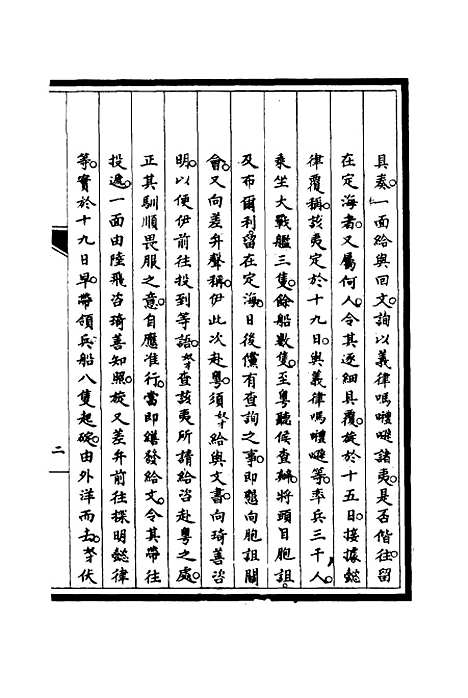 具奏一面給與回文詢以義律嗎噠𠺕諸夷是否偕往留
在定海者又屬何人令其逐細具覆旋於十五日接據懿
律覆稱該夷定於十九日與義律嗎噠𠺕等率兵三千人
乘坐大戰艦三隻餘船數隻至粵聽候查辦將頭目胞詛
及布爾利留在定海日後儻有查詢之事即懇向胞詛關
會又向差弁聲稱伊此次赴粵須奴才給與文書向琦善咨
明以便伊前往投到等語奴才查該夷所請給咨赴粵之處
正其馴順畏服之意自應准行當即繕發給文令其帶往
投遞一面由陸飛咨琦善知照旋又差弁前往探明懿律
等實於十九日早帶領兵船八隻起碇由外洋而去奴才伏
二